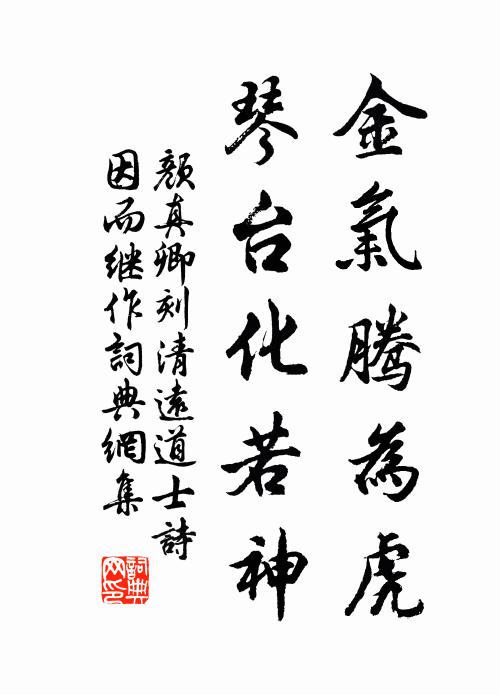 金氣騰為虎
琴台化若神
顏真卿刻清遠道士詩
因而继作詞典網集
詞典
网印